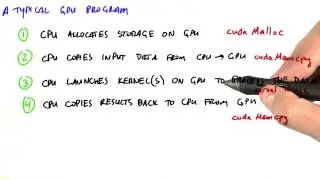 A TYPICAL GPU PROGRAM
1 CPU ALLOCATES STORAGE ON GPU cuda Malloc
2 CPU COPIES INPUT DATA FROM CPU → GPU cuda Memcpy
3 CPU LAUNCHES KERNEL(S) ON GPU TO PROCESS THE DATA
kernel
4 CPU COPIES RESULTS BACK TO CPU FROM GPU
cuda Memcpy